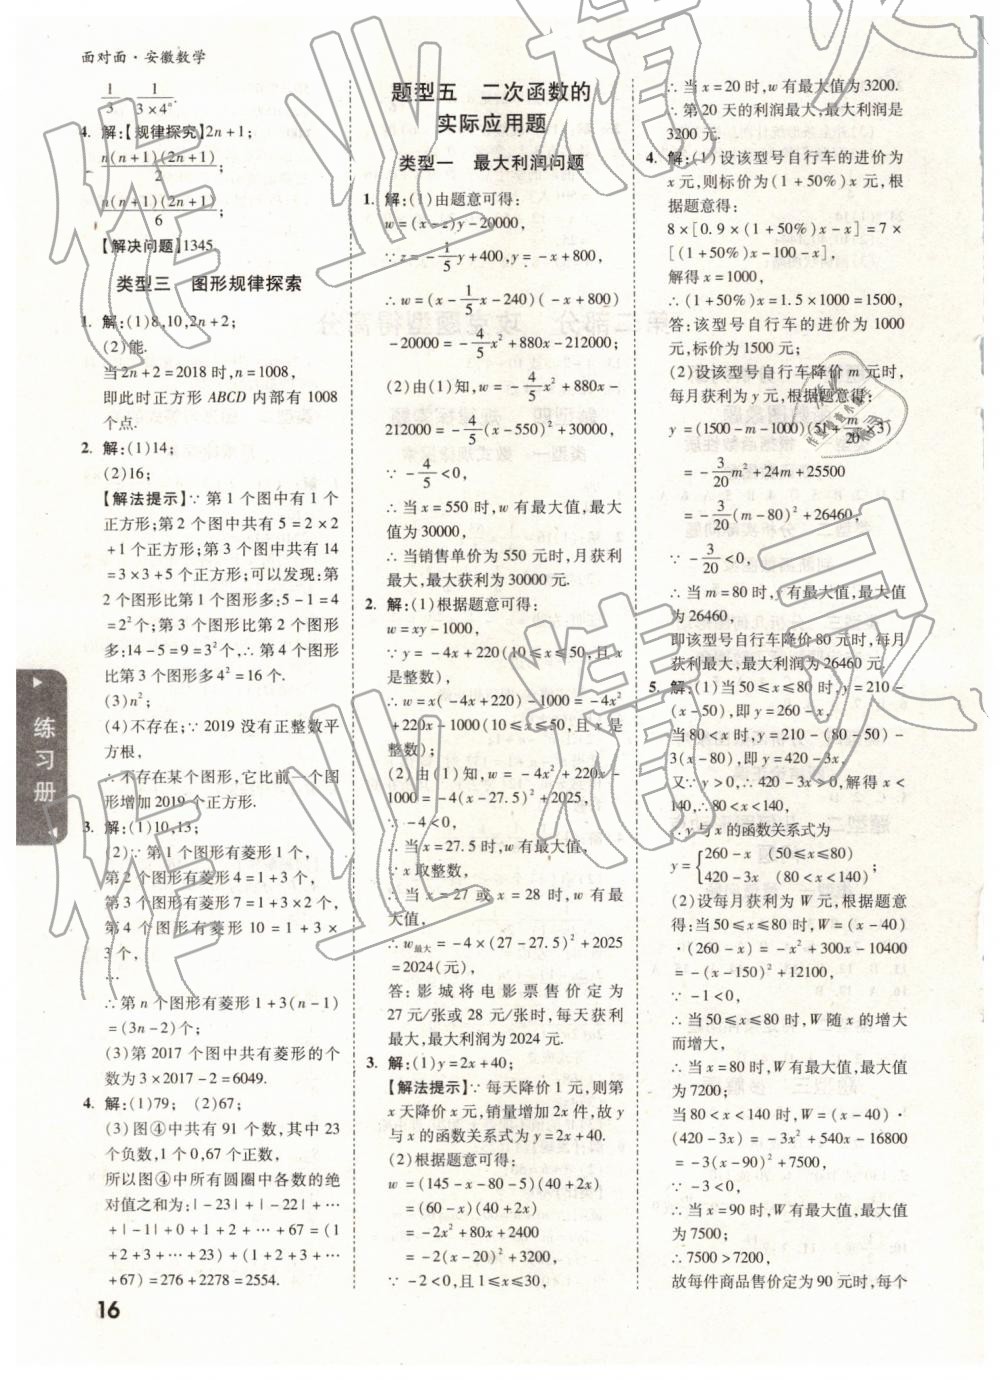 面对面·安徽数学
1/3 - 1/(3×4ⁿ).
4. 解:【规律探究】2n+1;
n(n+1)(2n+1)/2;
n(n+1)(2n+1)/6;
【解决问题】1345.
类型三 图形规律探索
1. 解:(1)8,10,2n+2;
(2)能.
当2n+2=2018时,n=1008,
即此时正方形ABCD内部有1008
个点.
2. 解:(1)14;
(2)16;
【解法提示】∵第1个图中有1个
正方形;第2个图中共有5=2×2
+1个正方形;第3个图中共有14
=3×3+5个正方形;可以发现:第
2个图形比第1个图形多:5-1=4
=2²个;第3个图形比第2个图形
多:14-5=9=3²个,…,则第4个
图形比第3个图形多4²=16个.
(3)n²;
(4)不存在;∵2019没有正整数平
方根,
∴不存在某个图形,它比前一个图
形增加2019个正方形.
3. 解:(1)10,13;
(2)∵第1个图形有菱形1个,
第2个图形有菱形4=1+3个,
第3个图形有菱形7=1+3×2个,
第4个图形有菱形10=1+3×
3个,
…
∴第n个图形有菱形1+3(n-1)
=(3n-2)个;
(3)第2017个图中共有菱形的个
数为3×2017-2=6049.
4. 解:(1)79; (2)67;
(3)图④中共有91个数,其中23
个负数,1个0,67个正数,
所以图④中所有圆圈中各数的绝
对值之和为:|-23|+|-22|+…
+|-1|+0+1+2+…+67=(1
+2+3+…+23)+(1+2+3+…
+67)=276+2278=2554.
题型五 二次函数的
实际应用题
类型一 最大利润问题
1. 解:(1)由题意可得:
w=(x-z)y-20000,
∵z=-1/5y+400,y=-x+800,
∴w=(x-1/5x-240)(-x+800)
-20000=-4/5x²+880x-212000;
(2)由(1)知,w=-4/5x²+880x-
212000=-4/5(x-550)²+30000,
∵-4/5<0,
∴当x=550时,w有最大值,最大
值为30000,
∴当销售单价为550元时,月获利
最大,最大获利为30000元.
2. 解:(1)根据题意可得:
w=xy-1000,
∵y=-4x+220(10≤x≤50,且x
是整数),
∴w=x(-4x+220)-1000=-4x²
+220x-1000(10≤x≤50,且x是
整数);
(2)由(1)知,w=-4x²+220x-
1000=-4(x-27.5)²+2025,
∵-4<0,
∴当x=27.5时,w有最大值,
∵x取整数,
∴当x=27或x=28时,w有最
大值,
∴w最大=-4×(27-27.5)²+2025
=2024(元),
答:影城将电影票售价定为
27元/张或28元/张时,每天获利
最大,最大利润为2024元.
3. 解:(1)y=2x+40;
【解法提示】∵每天降价1元,则第
x天降价x元,销量增加2x件,故y
与x的函数关系式为y=2x+40.
(2)根据题意可得:
w=(145-x-80-5)(40+2x)
=(60-x)(40+2x)
=-2x²+80x+2400
=-2(x-20)²+3200,
∵-2<0,且1≤x≤30,
∴当x=20时,w有最大值为3200.
∴第20天的利润最大,最大利润是
3200元.
4. 解:(1)设该型号自行车的进价为
x元,则标价为(1+50%)x元,根
据题意得:
8×[0.9×(1+50%)x-x]=7×
[(1+50%)x-100-x],
解得x=1000,
∴(1+50%)x=1.5×1000=1500,
答:该型号自行车的进价为1000
元,标价为1500元;
(2)设该型号自行车降价m元时,
每月获利为y元,根据题意得:
y=(1500-m-1000)(51+m/20×3)
=-3/20m²+24m+25500
=-3/20(m-80)²+26460,
∵-3/20<0,
∴当m=80时,y有最大值,最大值
为26460,
即该型号自行车降价80元时,每月
获利最大,最大利润为26460元.
5. 解:(1)当50≤x≤80时,y=210-
(x-50),即y=260-x,
当80<x时,y=210-(80-50)-
3(x-80),即y=420-3x,
又∵y>0,∴420-3x>0,解得x<
140,∴80<x<140,
∴y与x的函数关系式为
y={260-x (50≤x≤80)
420-3x (80<x<140);
(2)设每月获利为W元,根据题意
得:当50≤x≤80时,W=(x-40)
·(260-x)=-x²+300x-10400
=-(x-150)²+12100,
∵-1<0,
∴当50≤x≤80时,W随x的增大
而增大,
∴当x=80时,W有最大值,最大值
为7200;
当80<x<140时,W=(x-40)·
(420-3x)=-3x²+540x-16800
=-3(x-90)²+7500,
∵-3<0,
∴当x=90时,W有最大值,最大值
为7500;
∵7500>7200,
故每件商品售价定为90元时,每个
练习册
16
作业精灵
作业精灵